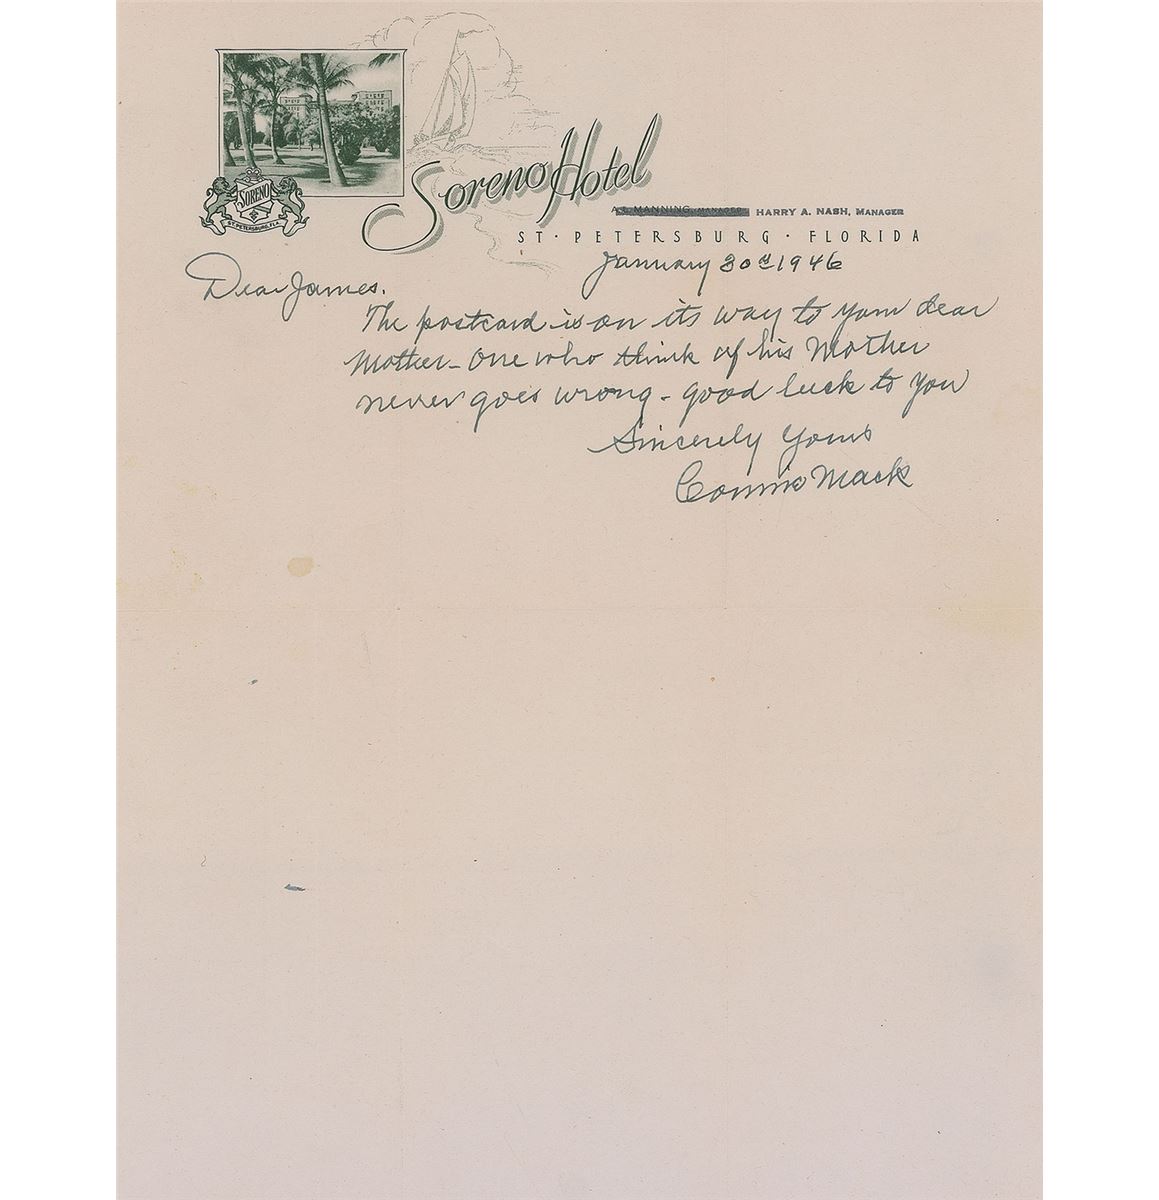 Soreno Hotel
SORENO
ST. PETERSBURG, FLA.
MANNING, MANAGER HARRY A. NASH, MANAGER
ST · PETERSBURG · FLORIDA
January 30th 1946
Dear James.
The postcard is on its way to your dear
Mother - One who think of his Mother
never goes wrong - good luck to you
Sincerely Yours
Connie Mack